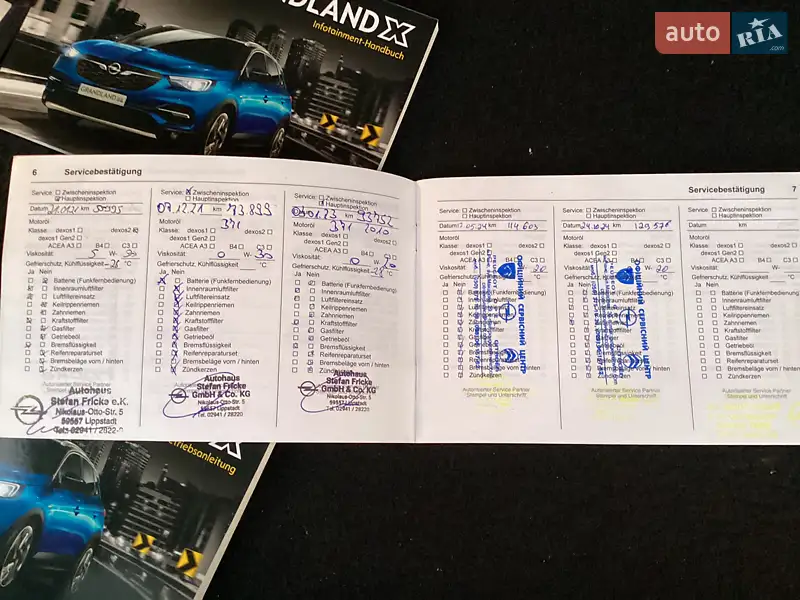 GRANDLAND X
Infotainment-Handbuch
auto RIA .com
GRANDLAND X
6 Servicebestätigung
Service: Zwischeninspektion
Hauptinspektion
Datum 21.01.21 km
Motoröl
Klasse: dexos1 dexos2
dexos1 Gen2
ACEA A3 B4 C3
Viskosität 5 W- 30
Gefrierschutz, Kühlflüssigkeit -28 °C
Ja Nein
Batterie (Funkfernbedienung)
Innenraumluftfilter
Luftfiltereinsatz
Keilrippenriemen
Zahnriemen
Kraftstofffilter
Gasfilter
Getriebeöl
Bremsflüssigkeit
Reifenreparaturset
Bremsbeläge vorn / hinten
Zündkerzen
Autorisierter Service Partner
Autohaus
Stefan Fricke e.K.
Nikolaus-Otto-Str. 5
59557 Lippstadt
Tel. 02941 / 2822-0
Service: Zwischeninspektion
Hauptinspektion
07.12.21 km 73899
Motoröl
Klasse: dexos1 dexos2
dexos1 Gen2
ACEA A3 B4 C3
Viskosität 0 W- 30
Gefrierschutz, Kühlflüssigkeit °C
Ja Nein
Batterie (Funkfernbedienung)
Innenraumluftfilter
Luftfiltereinsatz
Keilrippenriemen
Zahnriemen
Kraftstofffilter
Gasfilter
Getriebeöl
Bremsflüssigkeit
Reifenreparaturset
Bremsbeläge vorn / hinten
Zündkerzen
Autohaus
Stefan Fricke
GmbH & Co. KG
Nikolaus-Otto-Str. 5
59557 Lippstadt
Tel. 02941 / 28220
Service: Zwischeninspektion
Hauptinspektion
km 93752
Motoröl
Klasse: dexos1 dexos2
dexos1 Gen2
ACEA A3 B4 C3
Viskosität 0 W- 20
Gefrierschutz, Kühlflüssigkeit -28 °C
Ja Nein
Batterie (Funkfernbedienung)
Innenraumluftfilter
Luftfiltereinsatz
Keilrippenriemen
Zahnriemen
Kraftstofffilter
Gasfilter
Getriebeöl
Bremsflüssigkeit
Reifenreparaturset
Bremsbeläge vorn / hinten
Zündkerzen
Autohaus
Stefan Fricke
GmbH & Co. KG
Nikolaus-Otto-Str. 5
59557 Lippstadt
Tel. 02941 / 28220
Servicebestätigung 7
Service: Zwischeninspektion
Hauptinspektion
Datum 17.05.24 km 114603
Motoröl
Klasse: dexos1 dexos2
dexos1 Gen2
ACEA A3 B4
Viskosität 20
Gefrierschutz, Kühlflüssigkeit
Ja Nein
Batterie (Funkfernbedienung)
Innenraumluftfilter
Luftfiltereinsatz
Keilrippenriemen
Zahnriemen
Kraftstofffilter
Gasfilter
Getriebeöl
Bremsflüssigkeit
Reifenreparaturset
Bremsbeläge vorn / hinten
Zündkerzen
ОФІЦІЙНИЙ СЕРВІСНИЙ ЦЕНТР
Autorisierter Service Partner
Stempel und Unterschrift
Service: Zwischeninspektion
Hauptinspektion
Datum 24.10.24 km
Motoröl
Klasse: dexos1 dexos2
ACEA A3 B4
Viskosität 20
ОФІЦІЙНИЙ СЕРВІСНИЙ ЦЕНТР
Autorisierter Service Partner
Stempel und Unterschrift
Service: Zwischeninspektion
Hauptinspektion
Datum km
Motoröl
Klasse: dexos1
dexos1 Gen2
ACEA A3 B4
Viskosität
Gefrierschutz, Kühlflüssigkeit
Ja Nein
Batterie (Funkfernbedienung)
Innenraumluftfilter
Luftfiltereinsatz
Keilrippenriemen
Zahnriemen
Kraftstofffilter
Gasfilter
Getriebeöl
Bremsflüssigkeit
Reifenreparaturset
Bremsbeläge vorn / hinten
Zündkerzen
Autorisierter Service Partner
Stempel und Unterschrift
X
triebsanleitung